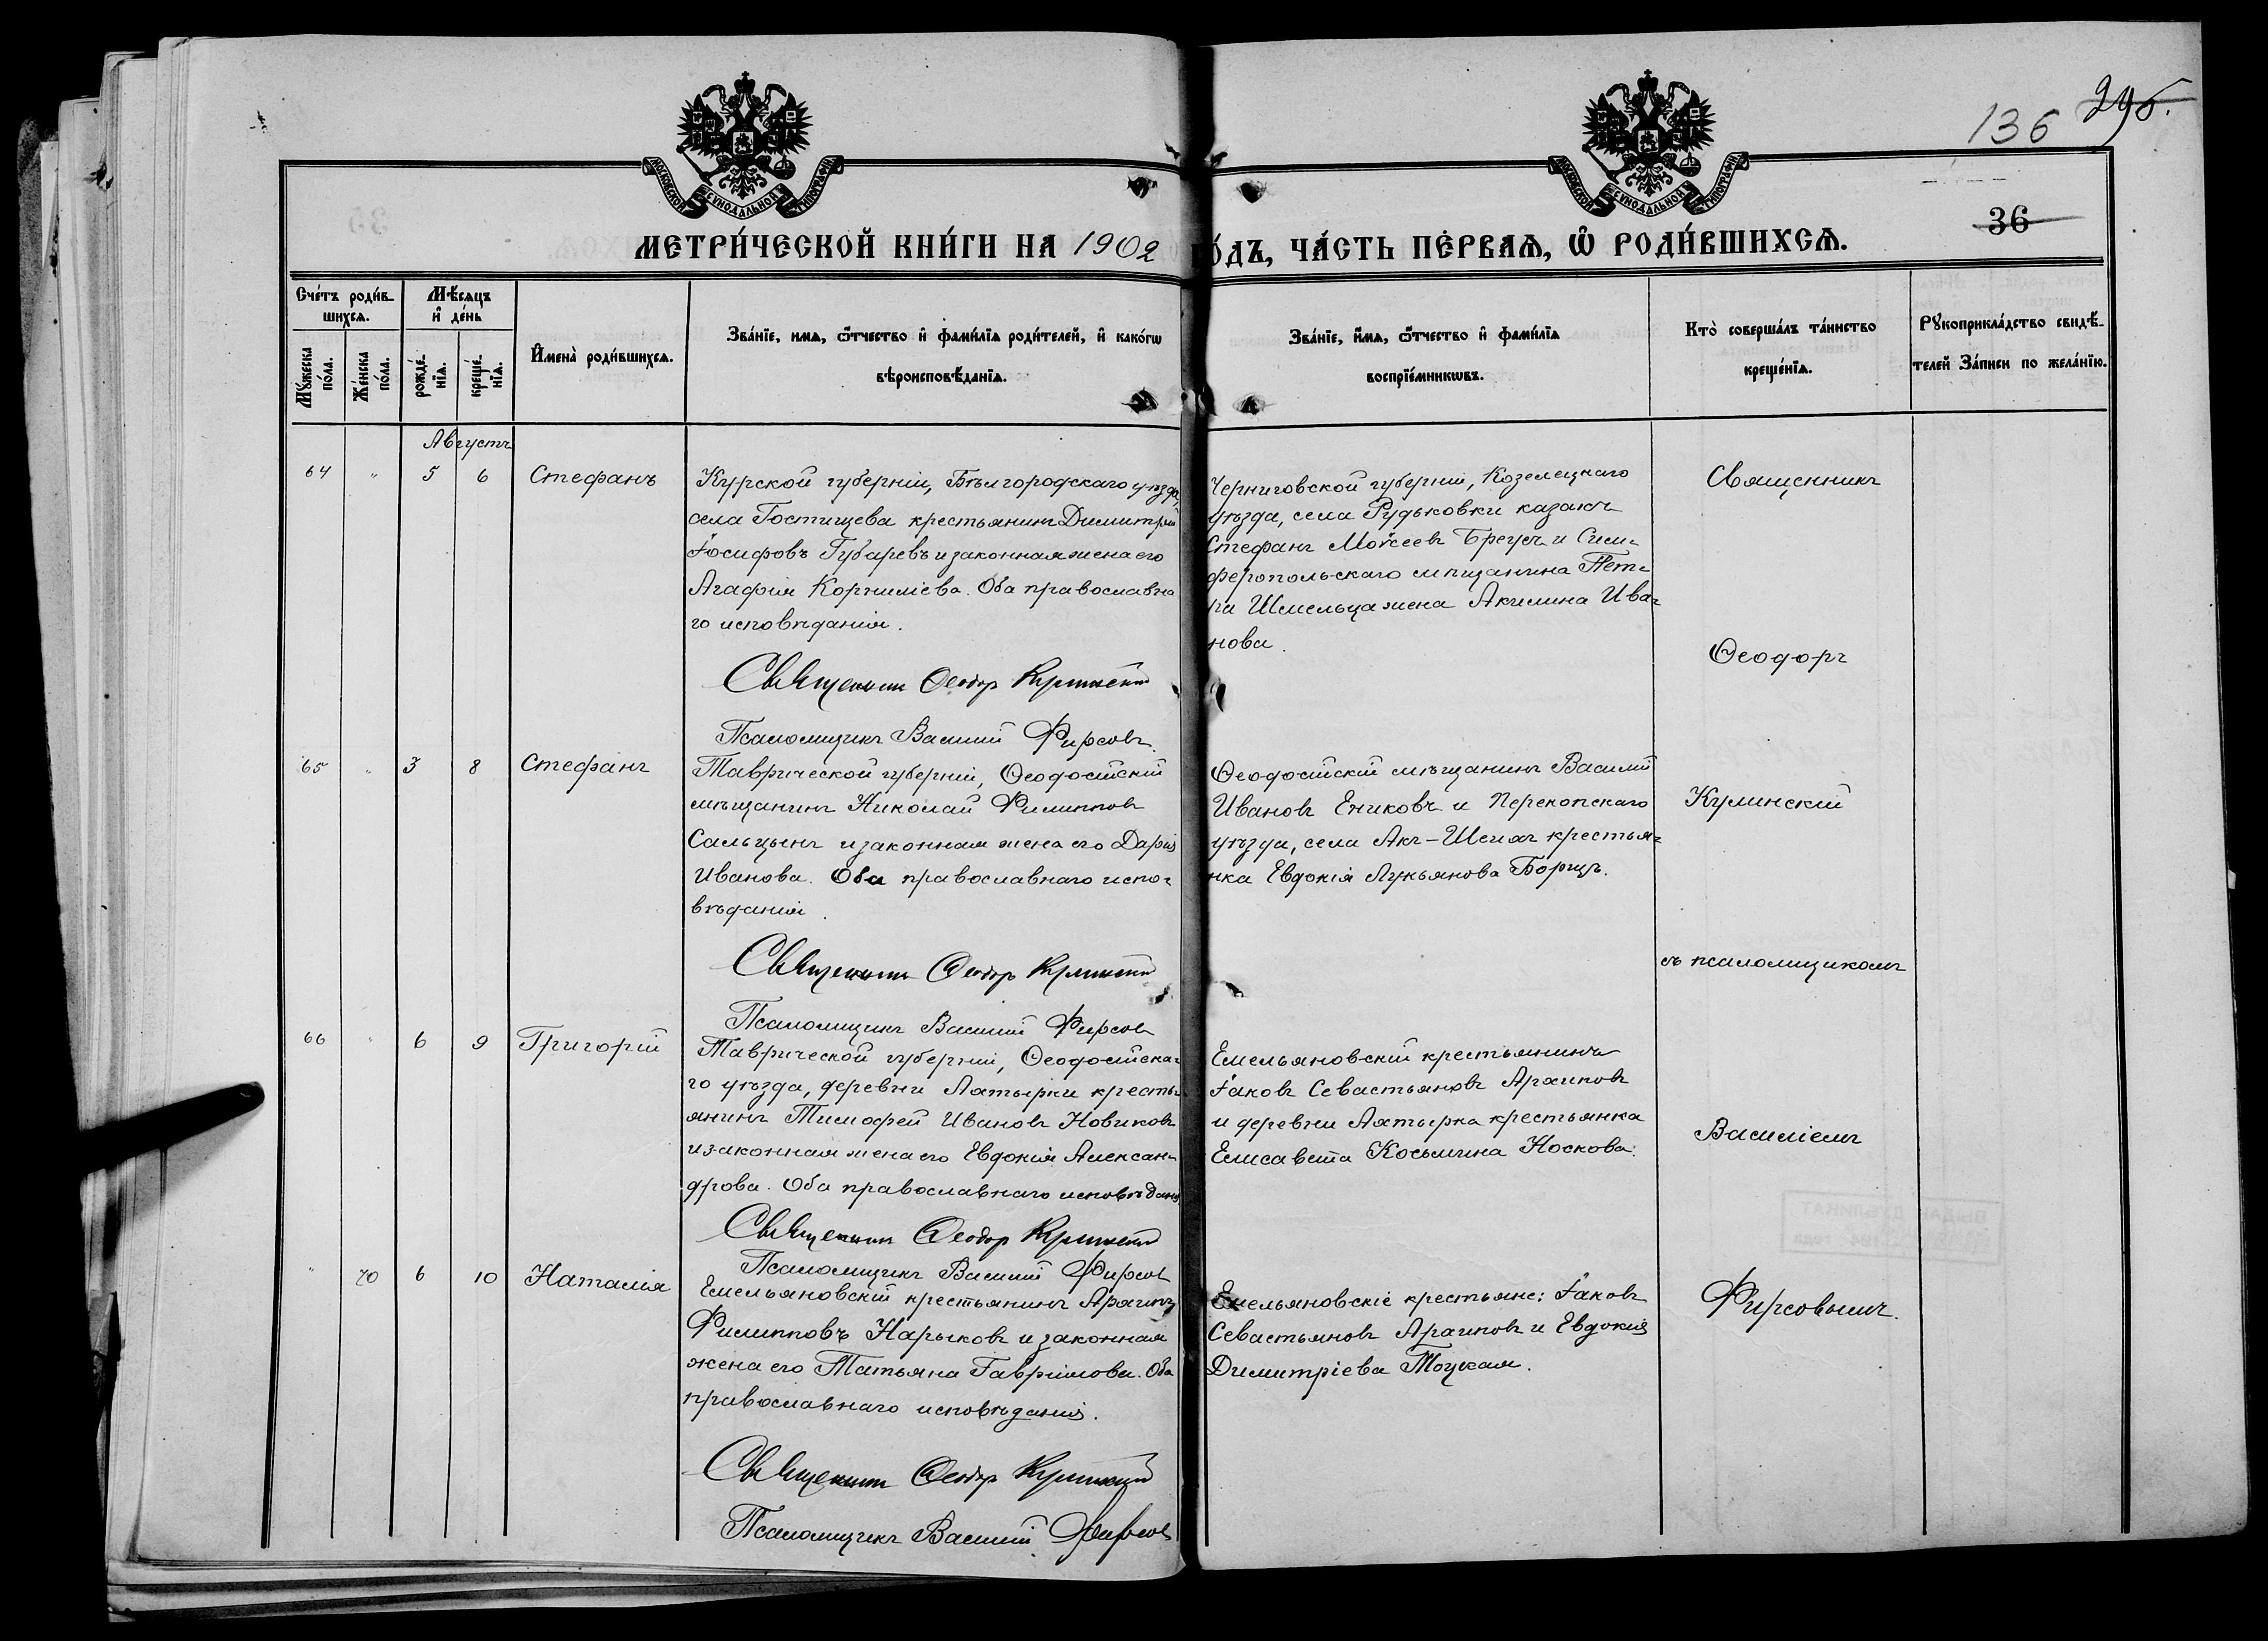 136 295.
36
МОСКОВСКОЙ СѴНОДАЛЬНОЙ ТИПОГРАФІИ
МОСКОВСКОЙ СѴНОДАЛЬНОЙ ТИПОГРАФІИ
МЕТРИ́ЧЕСКОЙ КНИ́ГИ НА 1902 ГО́ДЪ, ЧА́СТЬ ПЕ́РВАѦ, Ѡ РОДИ́ВШИХСѦ.
Сче́тъ роди́в-
шихсѧ.
Мꙋ́жеска по́ла.
Же́нска по́ла.
Мѣ́сѧцъ и҆ де́нь
рожде́-нїѧ.
креще́-нїѧ.
И҆мена̀ роди́вшихсѧ.
Зва́нїе, имѧ, ѻ҆́тчество и҆ фами́лїѧ роди́телей, и҆ како́гѡ
вѣроисповѣ́данїѧ.
Зва́нїе, и҆́мѧ, ѻ҆́тчество и҆ фами́лїѧ
воспрїе́мникѡвъ.
Кто̀ соверша́лъ та́инство
креще́нїѧ.
Рꙋкоприкла́дство свидѣ́-
телей За́писи по жела́нїю.
Августъ
64 " 5 6 Стефанъ
Курской губерніи, Бѣлгородскаго уѣзда,
села Гостищева крестьянинъ Димитрій
Іосифовъ Губаревъ и законная жена его
Агафія Корниліева. Оба православна
го исповѣданія.
Священникъ Ѳеодоръ Кулинскій
Псаломщикъ Василій Фирсовъ.
Черниговской губерніи, Козелецкаго
уѣзда, села Рудьковки казакъ
Стефанъ Моѵсеевъ Брегуъ и Сим-
феропольскаго мѣщанина Пет-
ра Шмельца жена Акилина Ива-
нова.
Священникъ
Ѳеодоръ
65 " 3 8 Стефанъ
Таврической губерніи, Ѳеодосійскій
мѣщанинъ Николай Филипповъ
Сальцынъ и законная жена его Дарія
Иванова. Оба православнаго испо-
вѣданія.
Священникъ Ѳеодоръ Кулинскій
Псаломщикъ Василій Фирсовъ
Ѳеодосійскій мѣщанинъ Василій
Ивановъ Ениковъ и Перекопскаго
уѣзда, села Акъ-Шеихъ крестьян-
нка Евдокія Лукьянова Борщъ.
Кулинскій
съ псаломщикомъ
66 " 6 9 Григорій
Таврической губерніи, Ѳеодосійска-
го уѣзда, деревни Ахтырки кресть-
янинъ Тимофей Ивановъ Новиковъ
и законная жена его Евдокія Алексан-
дрова. Оба православнаго исповѣданія
Священникъ Ѳеодоръ Кулинскій
Псаломщикъ Василій Фирсовъ
Емельяновскій крестьянинъ
Іаковъ Севастьяновъ Архиповъ
и деревни Ахтырка крестьянка
Елисавета Косьмина Носкова.
Василіемъ
" 70 6 10 Наталія
Емельяновскій крестьянинъ Архипъ
Филипповъ Нарыковъ и законная
жена его Татьяна Гавріилова. Оба
православнаго исповѣданія.
Священникъ Ѳеодоръ Кулинскій
Псаломщикъ Василій Фирсовъ
Емельяновскіе крестьяне: Іаковъ
Севастьяновъ Архиповъ и Евдокія
Димитріева Тоцкая.
Фирсовымъ.